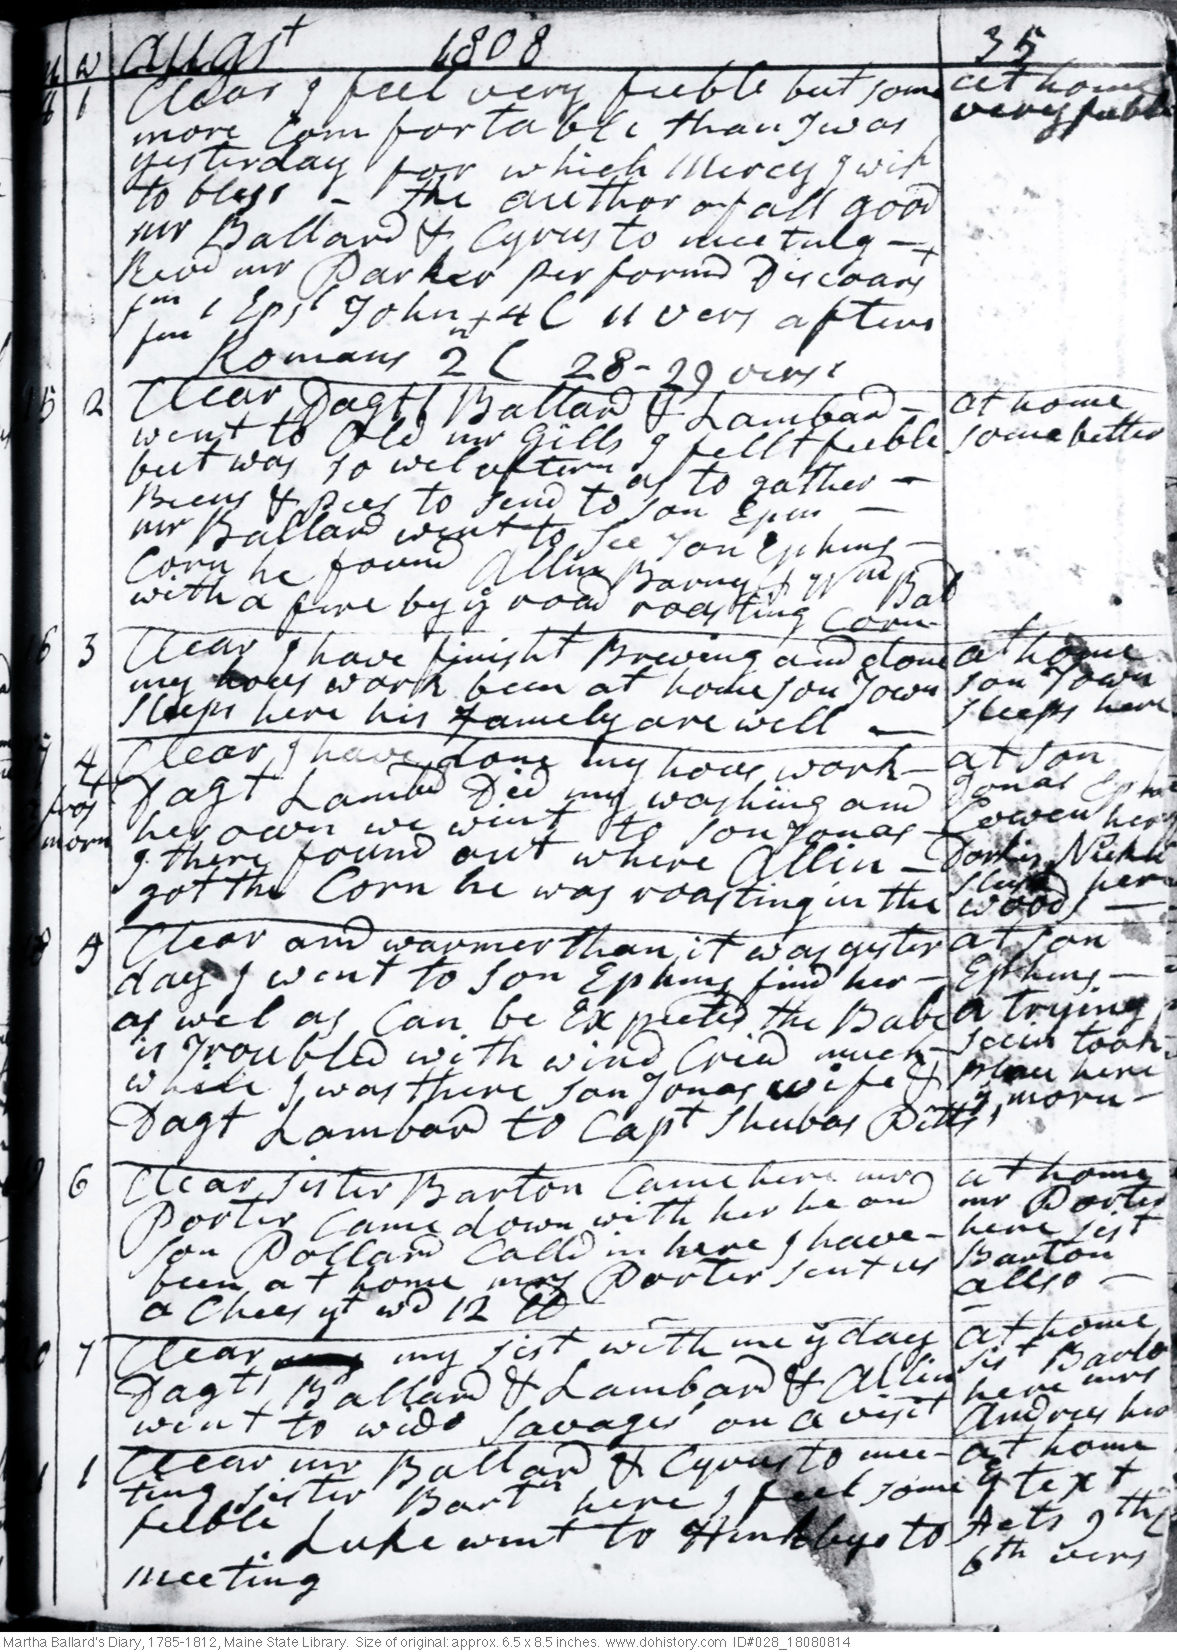 M W augst 1808 35
14 1 Clear I feel very feeble but some at home
more Comfortable than I was very feeble
yesterday for which Mercy I wish
to bless - the author of all good
mr Ballard & Cyrus to meeting -
Revd mr Parker performd Discoars
fm 1 Epst John 4 C 11 vers aftern
fm Romans 2 C 28 - 29 verss
15 2 Clear Dagts Ballard & Lambard - at home
went to Old mr Gills I fellt feeble some better
but was so wel aftern as to gather -
Beens & Pees to send to son Epm -
mr Ballard went to see son Ephms -
Corn he found Allin Barny & Wm Bal
with a fire by ye road roasting Corn
16 3 Clear I have finisht Brewing and done at home
my hous work been at home son Town son Town
sleeps here his family are well - sleeps here
17 4 Clear I have done my hous work - at son
frost Dagt Lambd Did my washing and Jonas
morn her own we wint to son Jonas -
I there found out where Allin -
got the Corn he was roasting in the woods -
18 5 Clear and warmer than it was yester at son
day I went to son Ephms find her - Ephms -
as wel as Can be Expected the Babe a trying
is Troubled with wind Cried much - scein took
while I was there son Jonas wife & place here
Dagt Lambard to Capt Shubas Pitts' ys morn -
19 6 Clear sister Barton Came here mr at home
Porter Came down with her he and mr Porter
son Pollard Calld in here I have - here sist
been at home mrs Porter sent us Barton
a Chees yt wd 12 lb allso -
20 7 Clear my sist with me ys day at home
Dagts Ballard & Lambard & Allin sist Barto
went to wido Savages on a visit here mrs
Andrus here
21 1 Clear mr Ballard & Cyrus to mee- at home
ting sister Bartn here I feel some ye text
feeble Luke went to Hinkleys to Acts 9th C
meeting 6th vers
Martha Ballard's Diary, 1785-1812, Maine State Library. Size of original: approx. 6.5 x 8.5 inches. www.dohistory.com ID#028_18080814